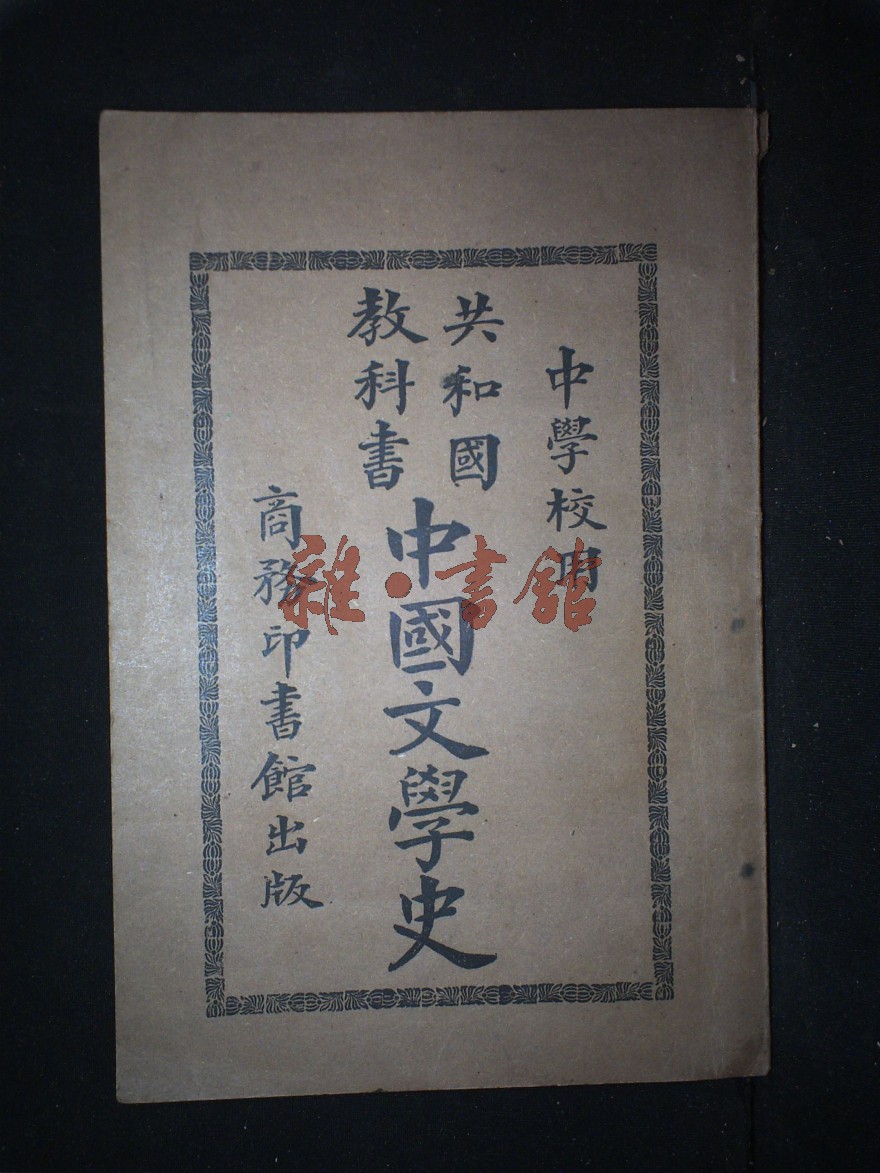 中學校用
共和國
教科書
中國文學史
商務印書館出版
雜·書館